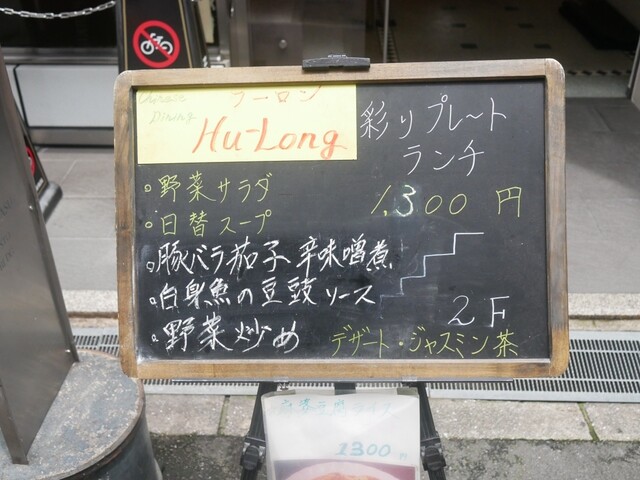 Chinese
Dining
フーロン
Hu-Long
彩りプレート
ランチ
1,300円
。野菜サラダ
。日替スープ
。豚バラ茄子辛味噌煮
。白身魚の豆豉ソース
。野菜炒め
2F
デザート・ジャスミン茶
1300円